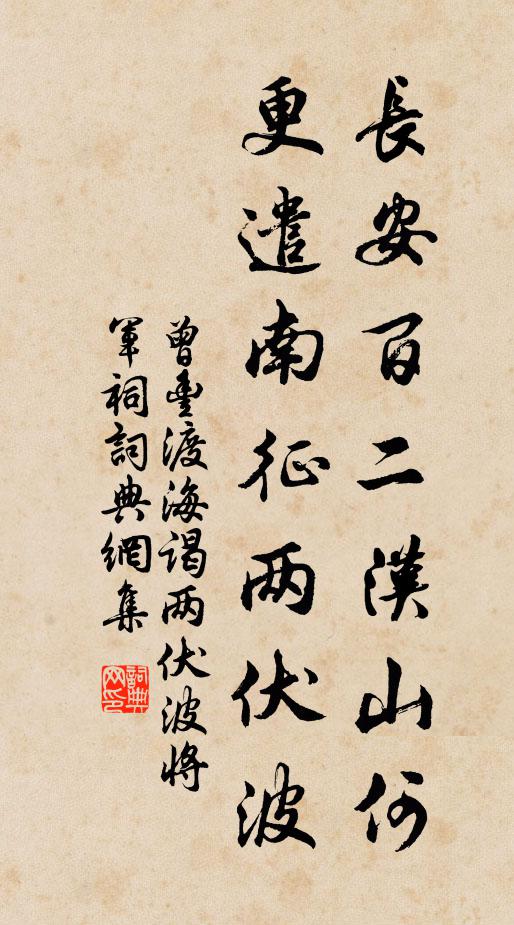 長安百二漢山何
更遣南征两伏波
曾豊渡海謁两伏波將
軍祠詞典網集
詞典网印